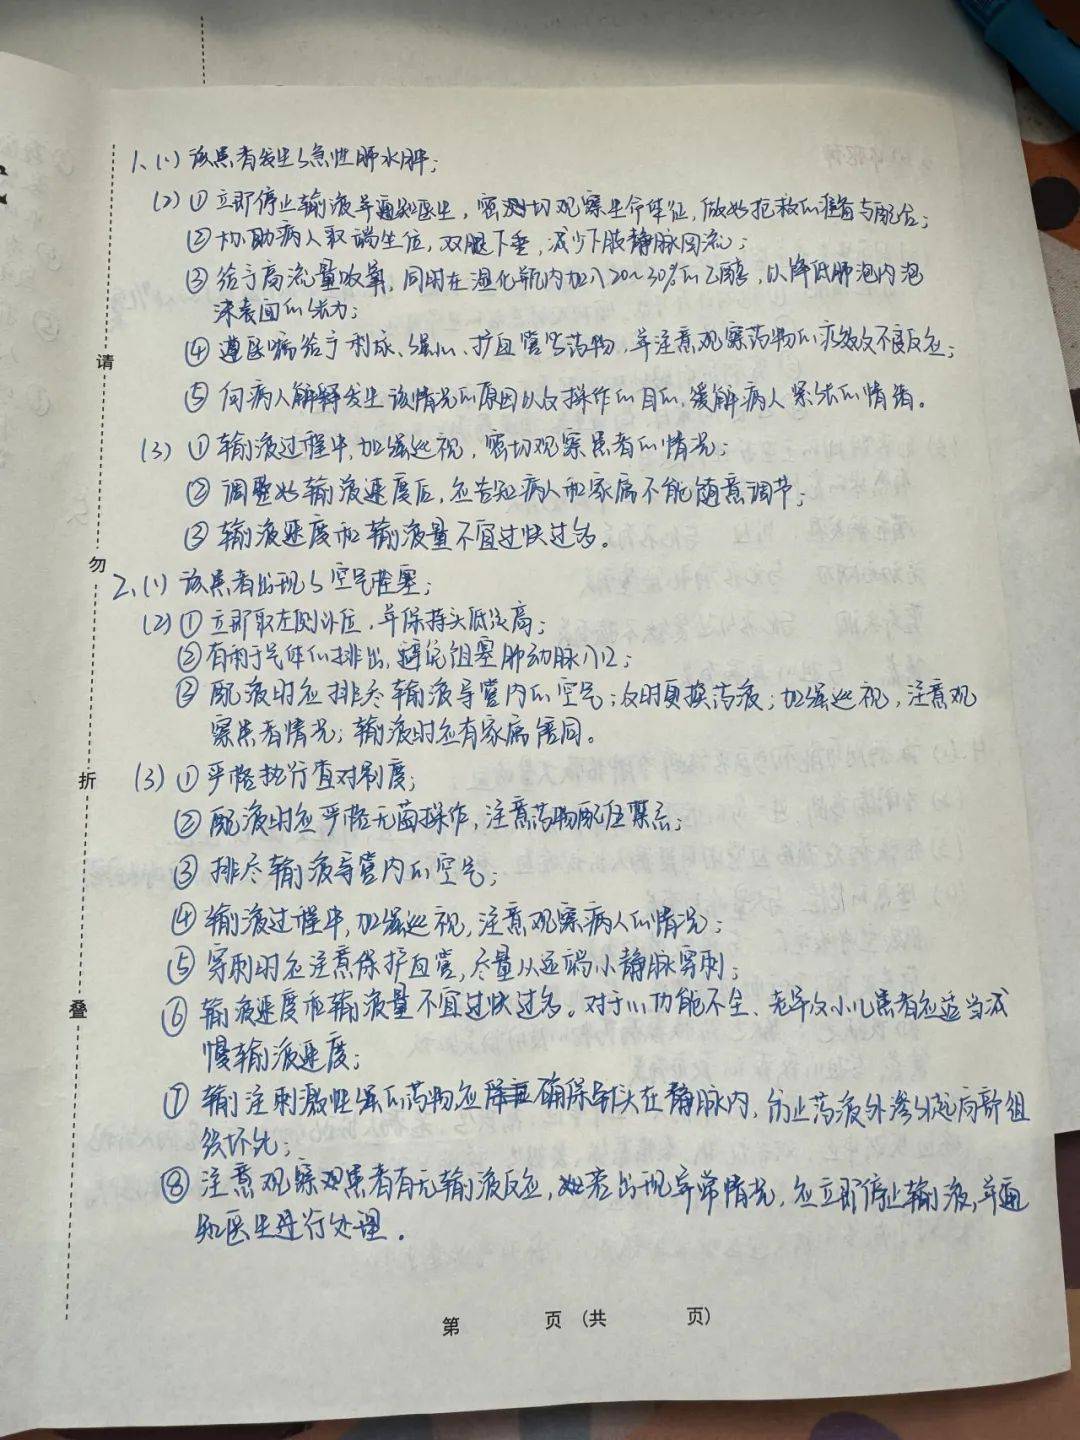 1、(1) 该患者发生了急性肺水肿；
(2) ① 立即停止输液并通知医生，密切观察生命体征，做好抢救的准备与配合；
② 协助病人取端坐位，双腿下垂，减少下肢静脉回流；
③ 给予高流量吸氧，同时在湿化瓶内加入20～30%的乙醇，以降低肺泡内泡
沫表面的张力；
④ 遵医嘱给予利尿、强心、扩血管等药物，并注意观察药物的疗效及不良反应；
⑤ 向病人解释发生该情况的原因以及操作的目的，缓解病人紧张的情绪。
(3) ① 输液过程中，加强巡视，密切观察患者的情况；
② 调整好输液速度后，应告知病人和家属不能随意调节；
③ 输液速度和输液量不宜过快过多。
2、(1) 该患者出现了空气栓塞；
(2) ① 立即取左侧卧位，并保持头低足高；
② 有利于气体的排出，避免阻塞肺动脉入口；
③ 配液时应排尽输液导管内的空气；及时更换药液；加强巡视，注意观
察患者情况；输液时应有家属陪同。
(3) ① 严格执行查对制度；
② 配液时应严格无菌操作，注意药物配伍禁忌；
③ 排尽输液导管内的空气；
④ 输液过程中，加强巡视，注意观察病人的情况；
⑤ 穿刺时应注意保护血管，尽量从远端小静脉穿刺；
⑥ 输液速度和输液量不宜过快过多。对于心功能不全、老年及小儿患者应适当减
慢输液速度；
⑦ 输注刺激性强的药物应确保针头在静脉内，防止药液外渗引起局部组
织坏死；
⑧ 注意观察患者有无输液反应，若出现异常情况，应立即停止输液，并通
知医生进行处理。
请
勿
折
叠
第 页 (共 页)